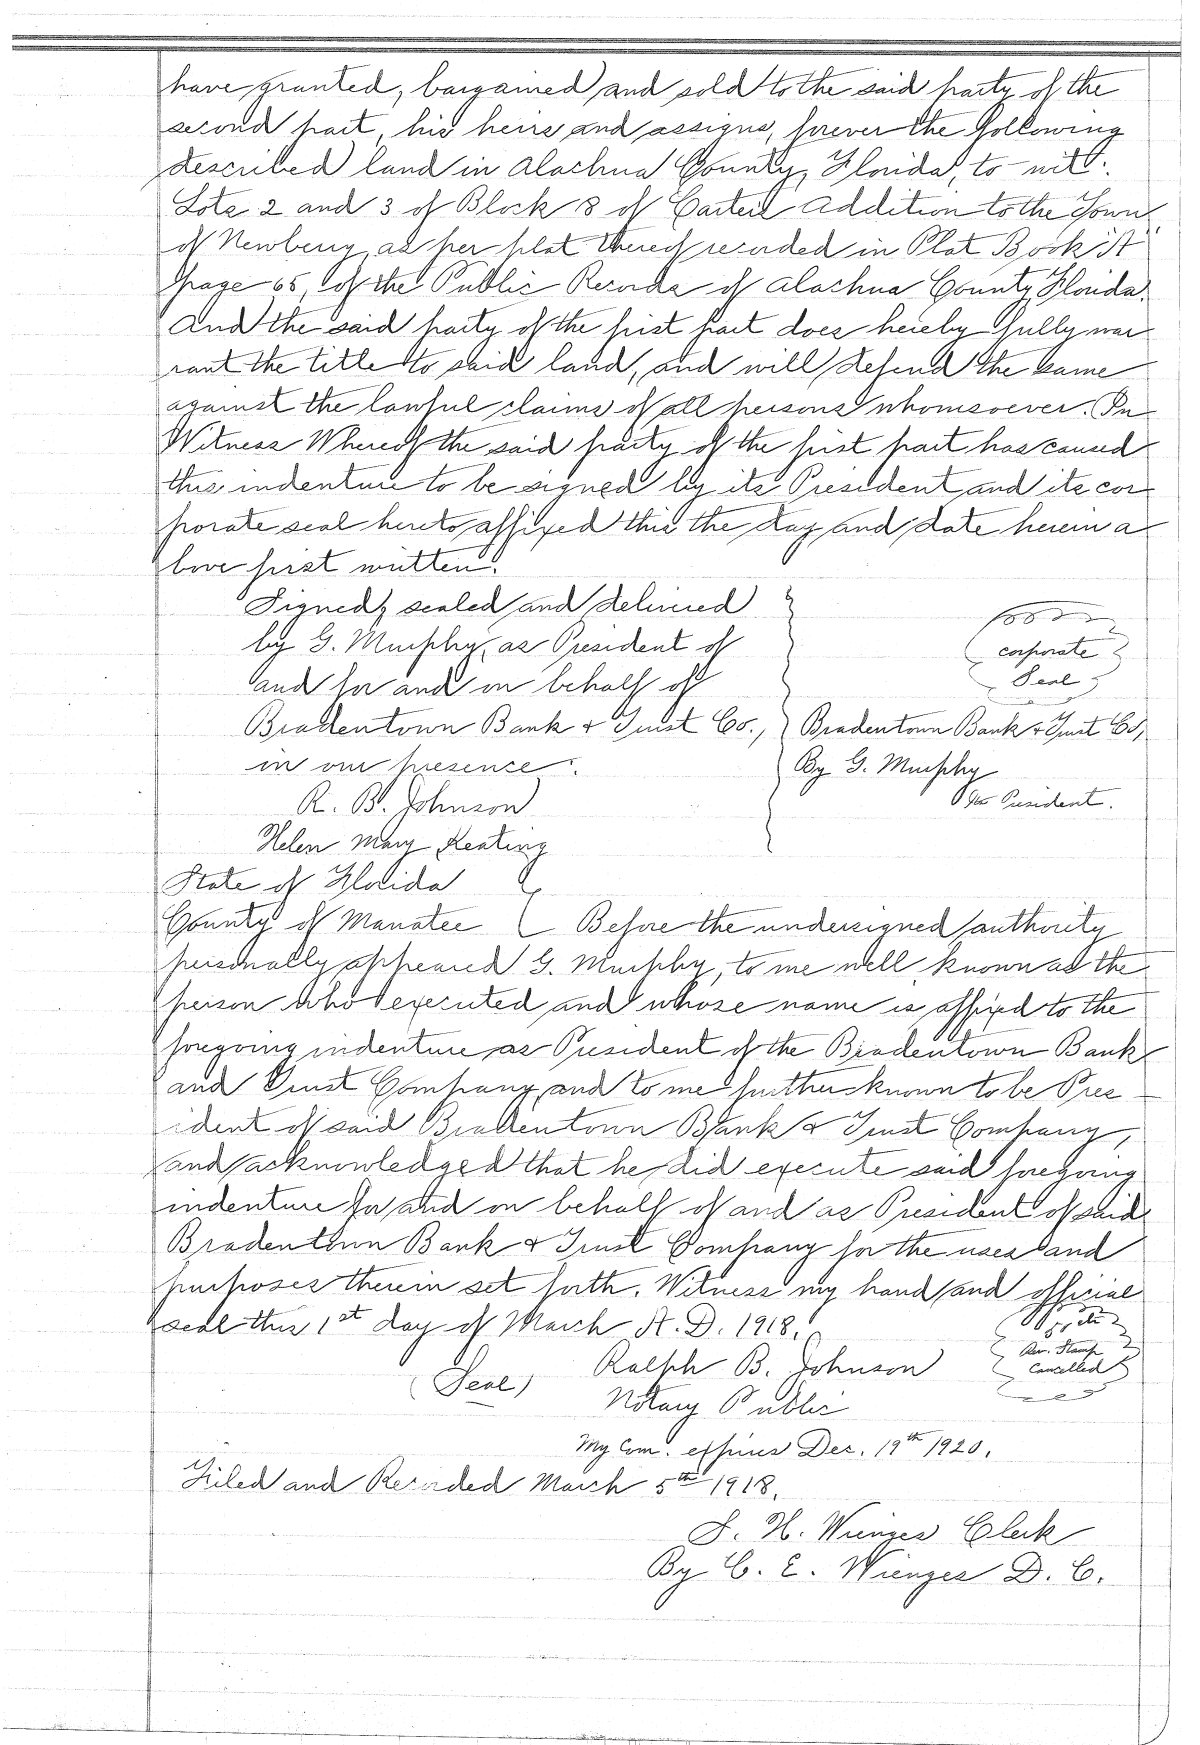 have granted, bargained and sold to the said party of the
second part, his heirs and assigns, forever the following
described land in Alachua County, Florida, to-wit:
Lots 2 and 3 of Block 8 of Carters Addition to the Town
of Newberry as per plat thereof recorded in Plat Book "A"
page 65, of the Public Records of Alachua County, Florida.
And the said party of the first part does hereby fully war-
rant the title to said land, and will defend the same
against the lawful claims of all persons whomsoever. In
Witness Whereof the said party of the first part has caused
this indenture to be signed by its President and its cor-
porate seal hereto affixed this the day and date herein a-
bove first written.
Signed, sealed and delivered
by G. Murphy, as President of
and for and on behalf of
Bradentown Bank & Trust Co.,
in our presence:
R. B. Johnson
Helen Mary Keating
corporate
Seal
Bradentown Bank & Trust Co,
By G. Murphy
Its President.
State of Florida
County of Manatee Before the undersigned authority
personally appeared G. Murphy, to me well known as the
person who executed and whose name is affixed to the
foregoing indenture as President of the Bradentown Bank
and Trust Company, and to me further known to be Pres-
ident of said Bradentown Bank & Trust Company,
and acknowledged that he did execute said foregoing
indenture for and on behalf of and as President of said
Bradentown Bank & Trust Company for the uses and
purposes therein set forth. Witness my hand and official
seal this 1st day of March A. D. 1918.
(Seal) Ralph B. Johnson
Notary Public
My Com. expires Dec. 19th 1920.
cts
Rev. Stamp
Cancelled
Filed and Recorded March 5th 1918.
S. H. Wienges Clerk
By C. E. Wienges D. C.